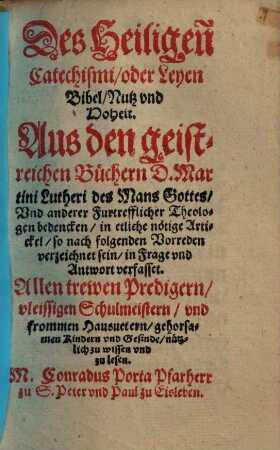 Des Heiligen̄
Catechismi/oder Leyen
Bibel/Nutz vnd
Hoheit.
Aus den geist-
reichen Büchern D. Mar
tini Lutheri des Mans Gottes/
Vnd anderer Furtrefflicher Theolo-
gen bedencken/ in etliche nötige Arti-
ckel/ so nach folgenden Vorreden
verzeichnet sein/ in Frage vnd
Antwort verfasset.
Allen trewen Predigern/
vleissigen Schulmeistern/ vnd
frommen Hausuetern/ gehorsa-
men Kindern vnd Gesinde/ nütz-
lich zu wissen vnd
zu lesen.
M. Conradus Porta Pfarherr
zu S. Peter vnd Paul zu Eisleben.